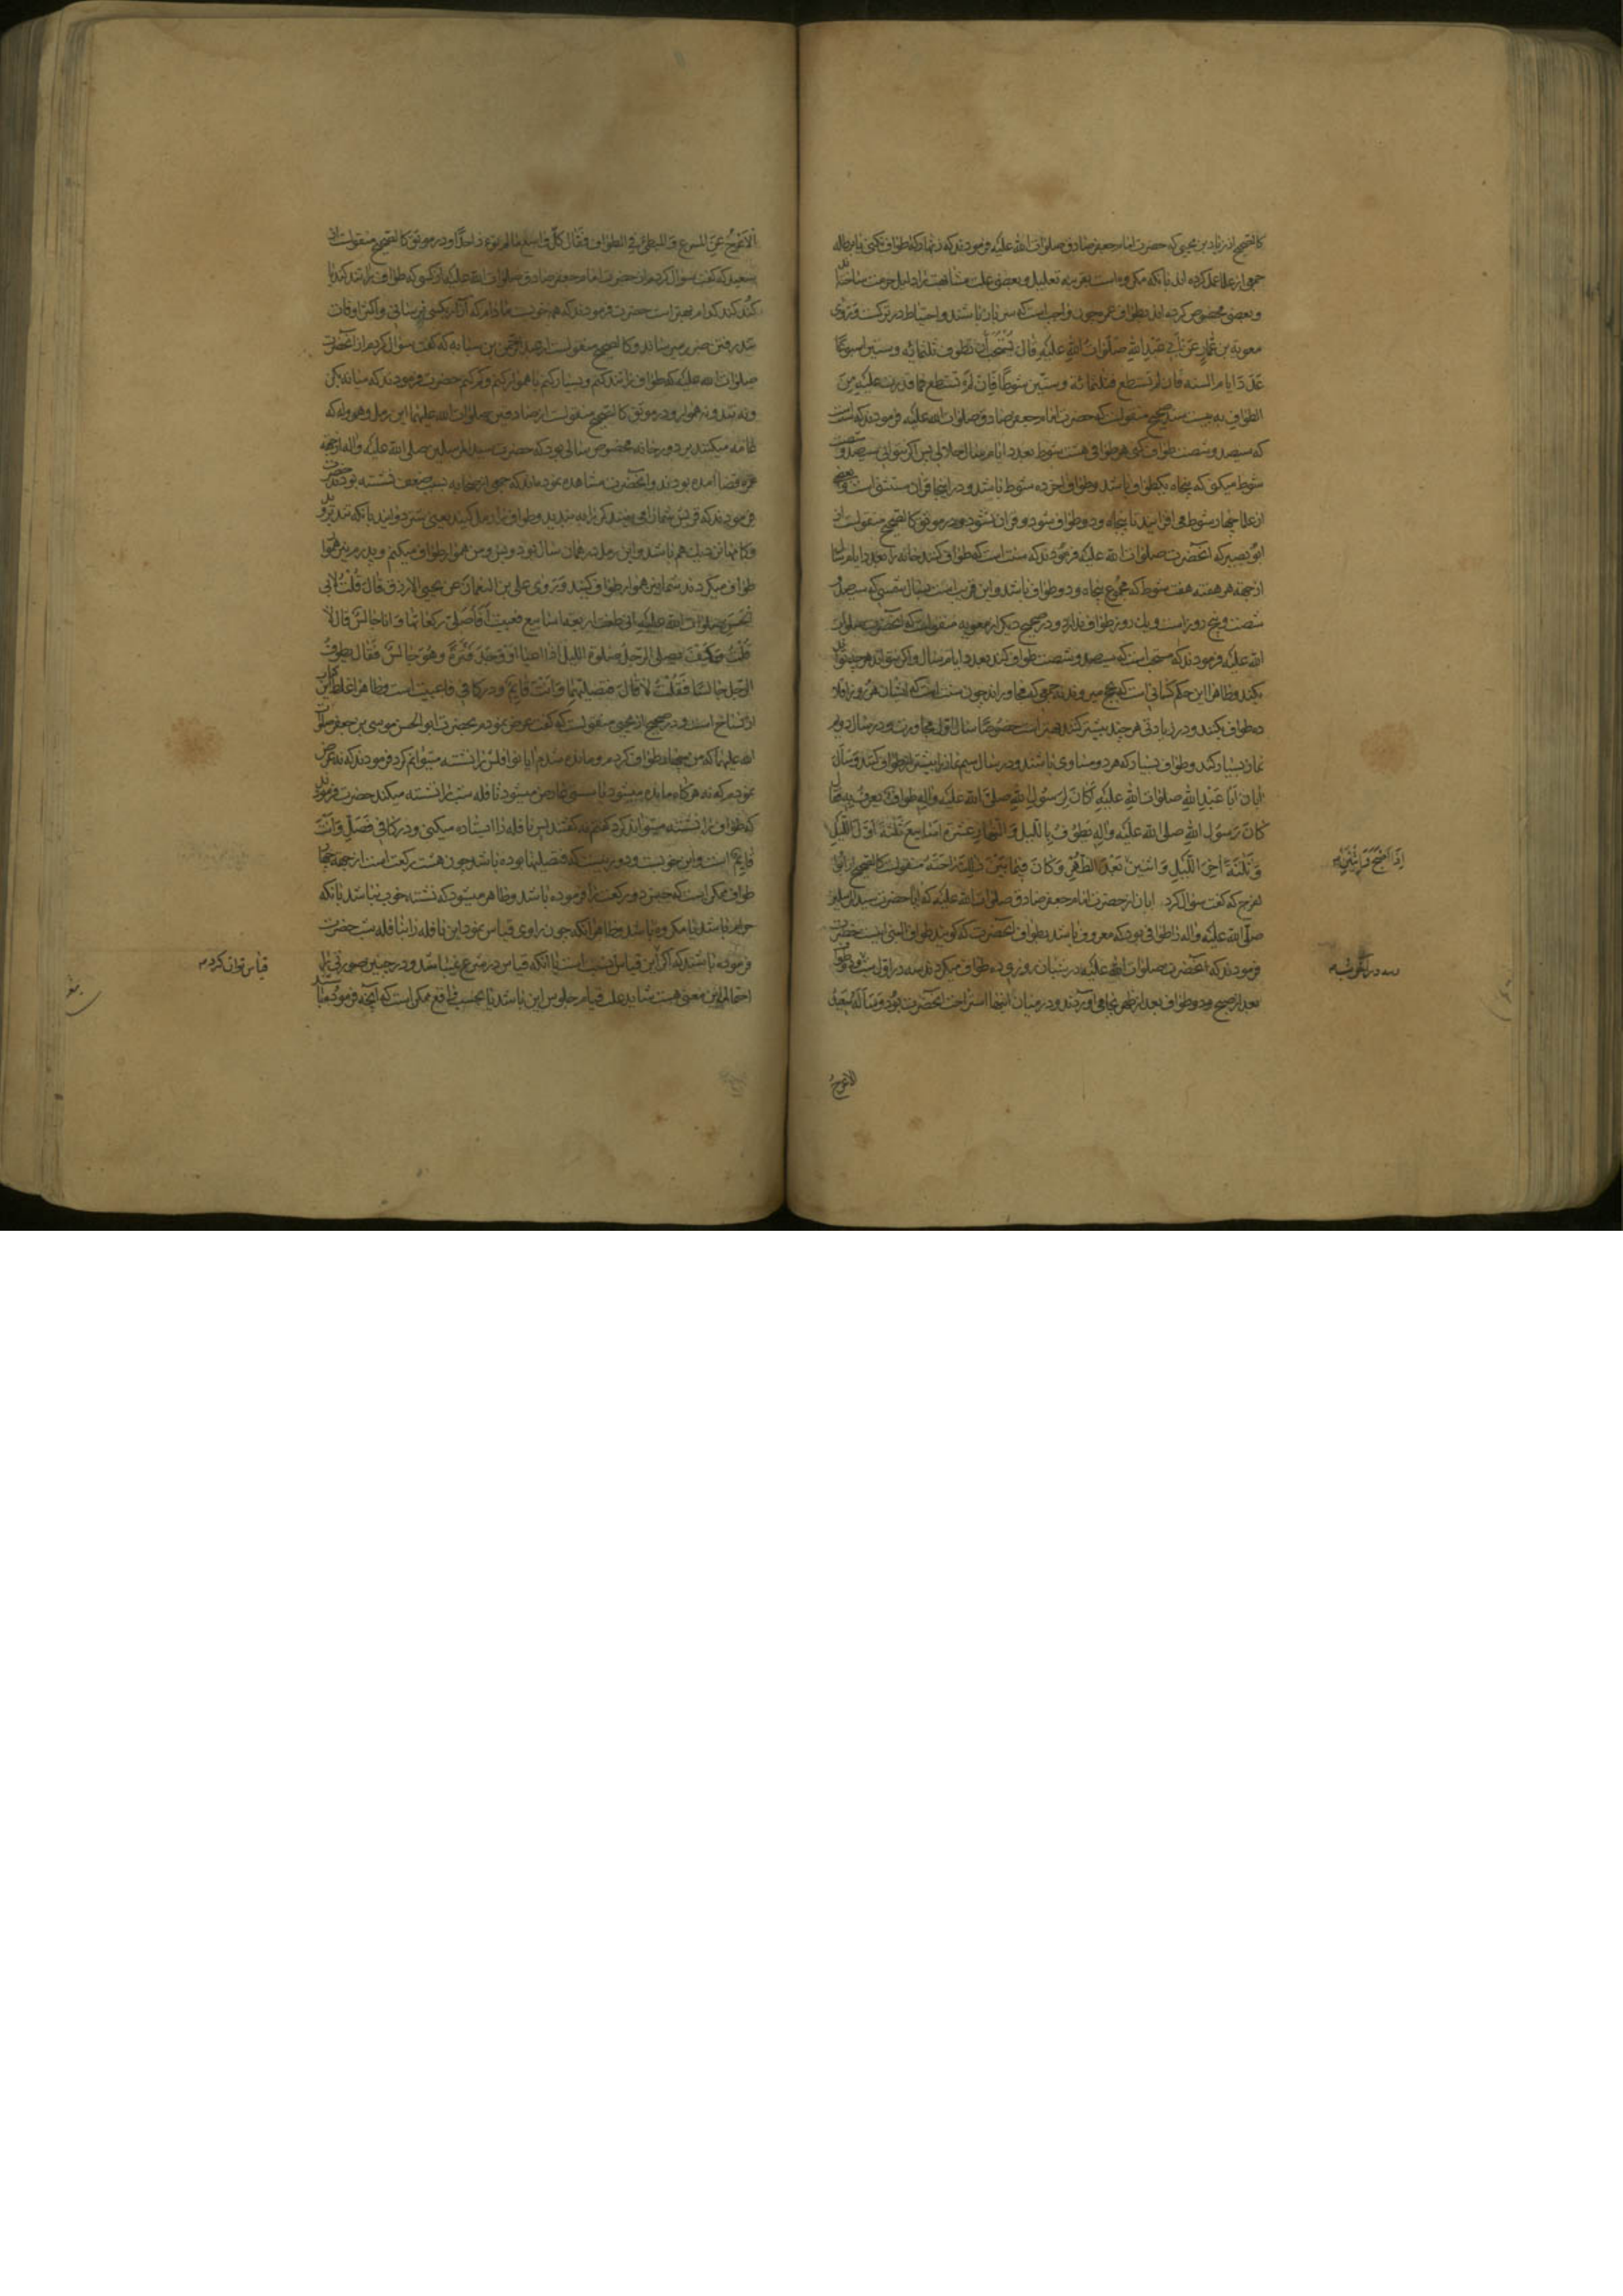 كالصحيح از زياد بن يحيى كه حضرت امام جعفر صادق صلوات الله عليه فرمودند كه زنهار كه طواف نكنى با برطله
جمعى از علما عمل كرده اند با آنكه مكروه است بقرينه تعليل و بعضى علت مشابهت را دليل حرمت ساخته‌اند
و بعضى مخصوص كرده اند بطواف عمره چون واجب است كه سر باز باشند و احتياط در تركست و روى
معوية بن عمار عن ابى عبد الله صلوات الله عليه قال يستحب ان تطوف ثلثمائه و ستين اسبوعا
عدد ايام السنه فان لم تستطع فثلثمائة و ستين شوطا فان لم تستطع فما قدرت عليه من
الطواف به بيست سند صحيح منقولست كه حضرت امام جعفر صادق صلوات الله عليه فرمودند كه سنت است
كه سيصد و شصت طواف كنى هر طوافى هفت شوط بعدد ايام سال پس اگر نتوانى سيصد و شصت
شوط ميكنى كه پنجاه يكطواف باشد و طواف آخر ده شوط باشد و در اينجا قران مستثنى است و بعضى
از علما چهار شوط مى افزايند تا پنجاه و دو طواف شود و قران نشود و در موثق كالصحيح منقولست از
ابو بصير كه آنحضرت صلوات الله عليه فرمودند كه سنت است كه طواف كنند خانه را بعدد ايام سال
از جهة هر هفته هفت شوط كه مجموع پنجاه و دو طواف باشد و اين قريب است بسال شمسى كه سيصد و
شصت و پنج روز است و يك روز طواف ندارد و در صحيح ديگر از معويه منقولست كه آنحضرت صلوات
الله عليه فرمودند كه مستحب است كه سيصد و شصت طواف كند بعدد ايام سال و اگر نتواند هر چه تواند
بكند و ظاهرا اين حكم كسانى است كه بحج ميروند نه جمعى كه مجاورند چون سنت است كه ايشان هر روز اقلا
ده طواف بكنند و در زيادتى هر چند بيشتر كنند بهتر است خصوصا سال اول مجاورت و در سال دويم
نماز بسيار كند و طواف بسيار كه هر دو مساوى باشند و در سال سيم نماز را بيشتر از طواف كند و سأل
ابان ابا عبد الله صلوات الله عليه أكان لرسول الله صلى الله عليه و اله طواف يعرف به فقال
كان رسول الله صلى الله عليه و اله يطوف بالليل و النهار عشرة اسابيع ثلثة اول الليل
و ثلثة اخر الليل و اثنين بعد الظهر و كان فيما بين ذلك راحته منقولست كالصحيح از ابو
الفرج كه گفت سؤال كرد ابان از حضرت امام جعفر صادق صلوات الله عليه كه آيا حضرت سيد المرسلين
صلى الله عليه و اله را طوافى بود كه معروف باشد بطواف آنحضرت كه گويند طواف النبى اينست حضرت
فرمودند كه آنحضرت صلوات الله عليه در شبان روزى ده طواف ميكردند سه در اول شب و دو طواف
بعد از صبح و دو طواف بعد از ظهر بجا مى آوردند و در ميان اينها استراحت آنحضرت بود و سأله سعيد
اذا اصبح و اثنين
سه در آخر شب
الاعرج
الاعرج عن المسرع و المبطئ فى الطواف فقال كل واسع ما لم يؤذ احدا و در موثق كالصحيح منقولست از
سعيد كه گفت سؤال كردم از حضرت امام جعفر صادق صلوات الله عليه از كسى كه طواف را تند كند يا
كند كند كدام بهتر است حضرت فرمودند كه همه خوبست مادام كه آزار بكسى نرسانى و اكثر اوقات
تند رفتن ضرر ميرساند و كالصحيح منقولست از عبد الرحمن بن سيابه كه گفت سؤال كردم از آنحضرت
صلوات الله عليه كه طواف را تند كنم و بسيار كنم يا هموار كنم و كم كنم حضرت فرمودند كه ميانه بكن
و نه تند و نه هموار و در موثق كالصحيح منقولست از صادقين صلوات الله عليهما اين رمل و هروله كه
عامه ميكنند بر دور خانه مخصوص سالى بود كه حضرت سيد المرسلين صلى الله عليه و اله از جهة
عمره قضا آمده بودند و آنحضرت مشاهده نمودند كه جمعى از صحابه بسبب ضعف نشسته بودند حضرت
فرمودند كه قريش شما را مى بينند كمرها به بنديد و طواف را رمل كنيد يعنى بدويد يا آنكه تند برويد
و گامها نزديك هم باشد و اين رمل در همان سال بود و بس و من هموار طواف ميكنم و پدرم نيز هموار
طواف ميكردند شما نيز هموار طواف كنيد و روى على بن النعمان عن يحيى الازرق قال قلت لابى
الحسن صلوات الله عليه انى طفت اربعة اسابيع فعييت أفاصلى ركعاتها و انا جالس قال لا
قلت و كيف يصلى الرجل صلوة الليل اذا اعيا او وجد فترة و هو جالس فقال يطوف
الرجل جالسا فقلت لا قال فتصليها و انت قايم و در كافى فاعييت است و ظاهرا غلط كتاب
از نساخ است و در صحيح از يحيى منقولست كه گفت عرض نمودم بحضرت ابو الحسن موسى بن جعفر صلوات
الله عليهما كه من چهار طواف كردم و مانده شدم آيا نوافلش را نشسته ميتوانم كرد فرمودند كه نه عرض
نمودم كه نه هرگاه مانده ميشود يا سستى عارض ميشود نافله شب را نشسته ميكند حضرت فرمودند
كه طواف را نشسته ميتواند كرد گفتم نه گفتند پس نافله را ايستاده ميكنى و در كافى فصل و انت
قايم است و اين خوبست و دور نيست كه فتصليها بوده باشد چون هشت ركعت است از جهة چهار
طواف ممكن است كه حضرت دو ركعت را فرموده باشد و ظاهر ميشود كه نشسته خوب نباشد يا آنكه
حرام باشد يا مكروه باشد و ظاهرا آنكه چون راوى قياس نمود اين نافله را بنافله شب حضرت
فرموده باشند كه اگر اين قياس است يا آنكه قياس در شرع نميباشد و در چنين صورتى
احتمال اين معنى هست شايد علت قيام جلوس اين باشد يا بحسب واقع ممكن است كه آنچه فرمودند
قياس توان كردم